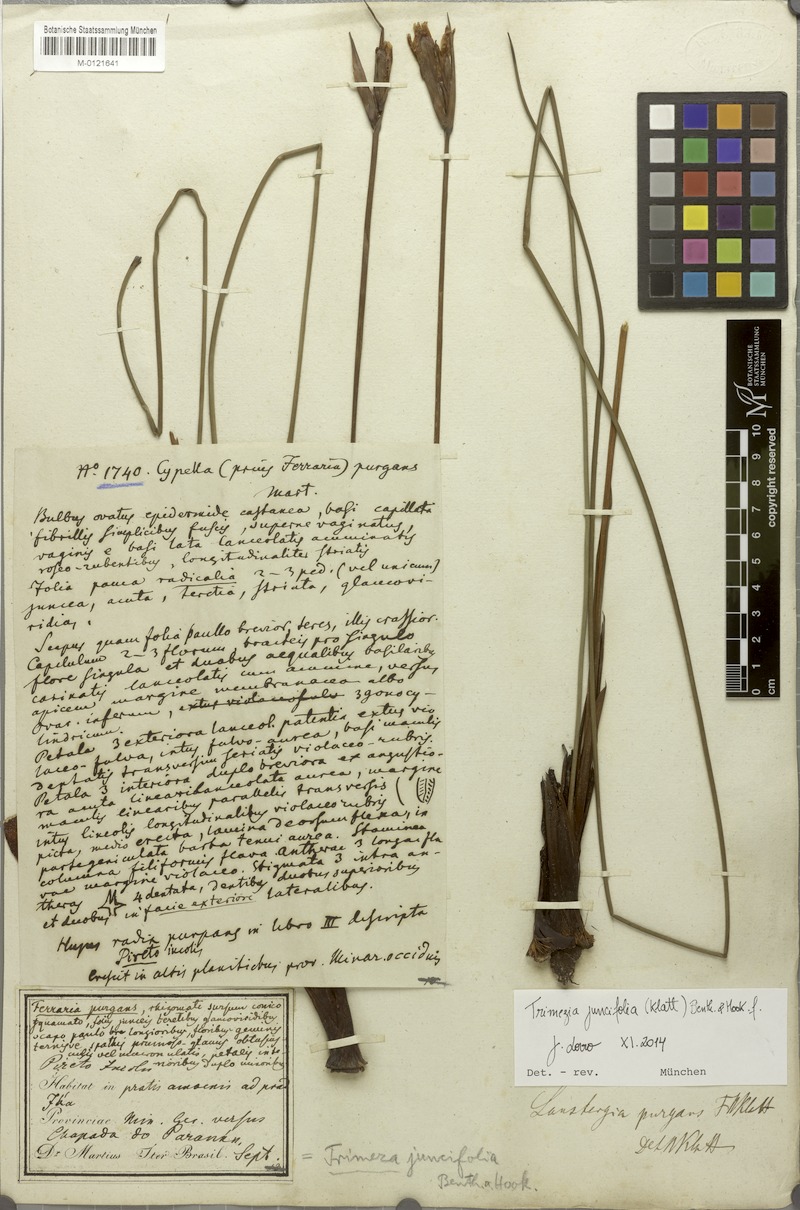 Botanische Staatssammlung München
M-0121641
No 1740. Cypella (prius Ferraria) purgans
Mart.
Bulbus ovatus epidermide castanea, basi capillata
fibrillis simplicibus fuscis, superne vaginatus,
vaginis e basi lata lanceolatis acuminatis
roseo-rubentibus, longitudinaliter striatis
Folia pauca radicalia 2-3 ped. (vel unicum)
juncea, acuta, teretia, striata, glaucovi-
ridia,
Scapus quam folia paullo brevior, teres, illis crassior.
Capitulum 2-3 florum, bracteis pro singulo
flore singula et duabus aequalibus basilaribus
carinatis lanceolatis cum acumine, versus
apicem margine membranaceo albo
Ovar. inferum, extus violacofulvo 3gonocy-
lindricum.
Petala 3 exteriora lanceol. patentia extus vio
laceo-fulva, intus fulvo-aurea, basi maculis
dentatis transversim seriatis violaceo-rubris.
Petala 3 interiora duplo breviora ex angustio-
ra acuta linearilanceolata aurea, margine
maculis linearibus parallelis transversis
intus lineolis longitudinalibus violaceorubris
picta, medio erecta, lamina deorsum flexa, in
parte geniculata barba tenui aurea. Stamina
columna filiformis flava. Antherae 3 longae fla
vae margine violaceo. Stigmata 3 intra an-
theras 4dentata, dentibus duobus superioribus
et duobus in facie exteriori lateralibus.
Hujus radix purgans in libro III descripta
Pireto incolis
Crescit in altis planitiebus prov. Minar. occiduis
Ferraria purgans, rhizomate sursum conico
squamato, foliis junceis teretibus glaucoviridibus
scapo paulo longioribus, floribus geminis
ternisve, spathis pruinoso-glaucis obtusius-
culis vel mucronulatis, petalis inte-
Pireto Incolis rioribus duplo minoribus
Habitat in pratis amoenis ad praed
Provinciae Min. Ger. versus
Chapada do Paranan,
Dr Martius Iter Brasil. Sept.
= Trimeza juncifolia
Benth. & Hook.
Trimezia juncifolia (Klatt) Benth. & Hook. f.
J. Lovo XI.2014
Det. - rev. München
Lansbergia purgans FWKlatt
Det. Klatt
BOTANISCHE
STAATSSAMMLUNG
MÜNCHEN
0 1 2 3 4 5 6 7 8 9 10
cm
copyright reserved